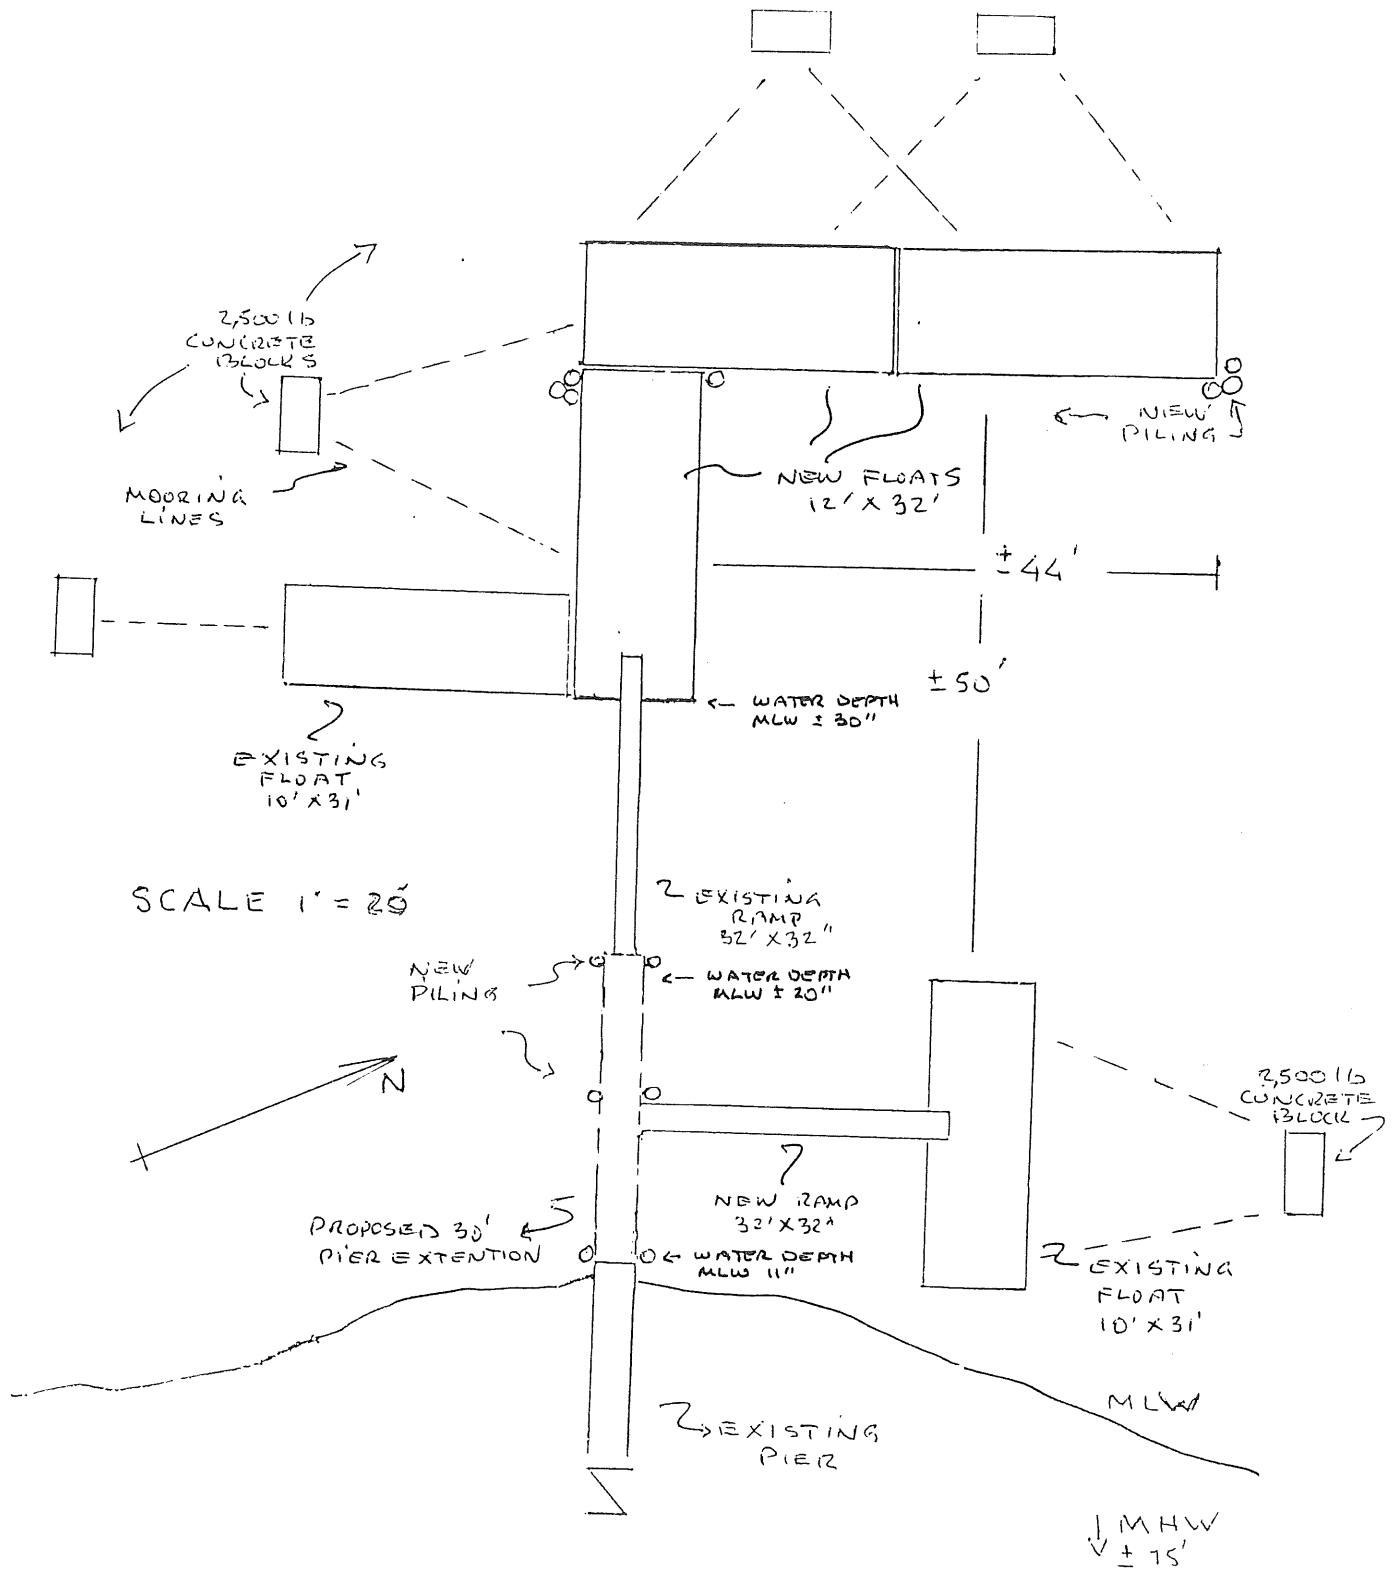 2,500 lb
CONCRETE
BLOCKS
NEW
PILING
NEW FLOATS
12' X 32'
MOORING
LINES
± 44'
± 50'
WATER DEPTH
MLW ± 30"
EXISTING
FLOAT
10' X 31'
SCALE 1" = 20'
EXISTING
RAMP
32' X 32"
NEW
PILING
WATER DEPTH
MLW ± 20"
N
2,500 lb
CONCRETE
BLOCK
NEW RAMP
32' X 32"
PROPOSED 30'
PIER EXTENTION
WATER DEPTH
MLW 11"
EXISTING
FLOAT
10' X 31'
MLW
EXISTING
PIER
MHW
± 75'